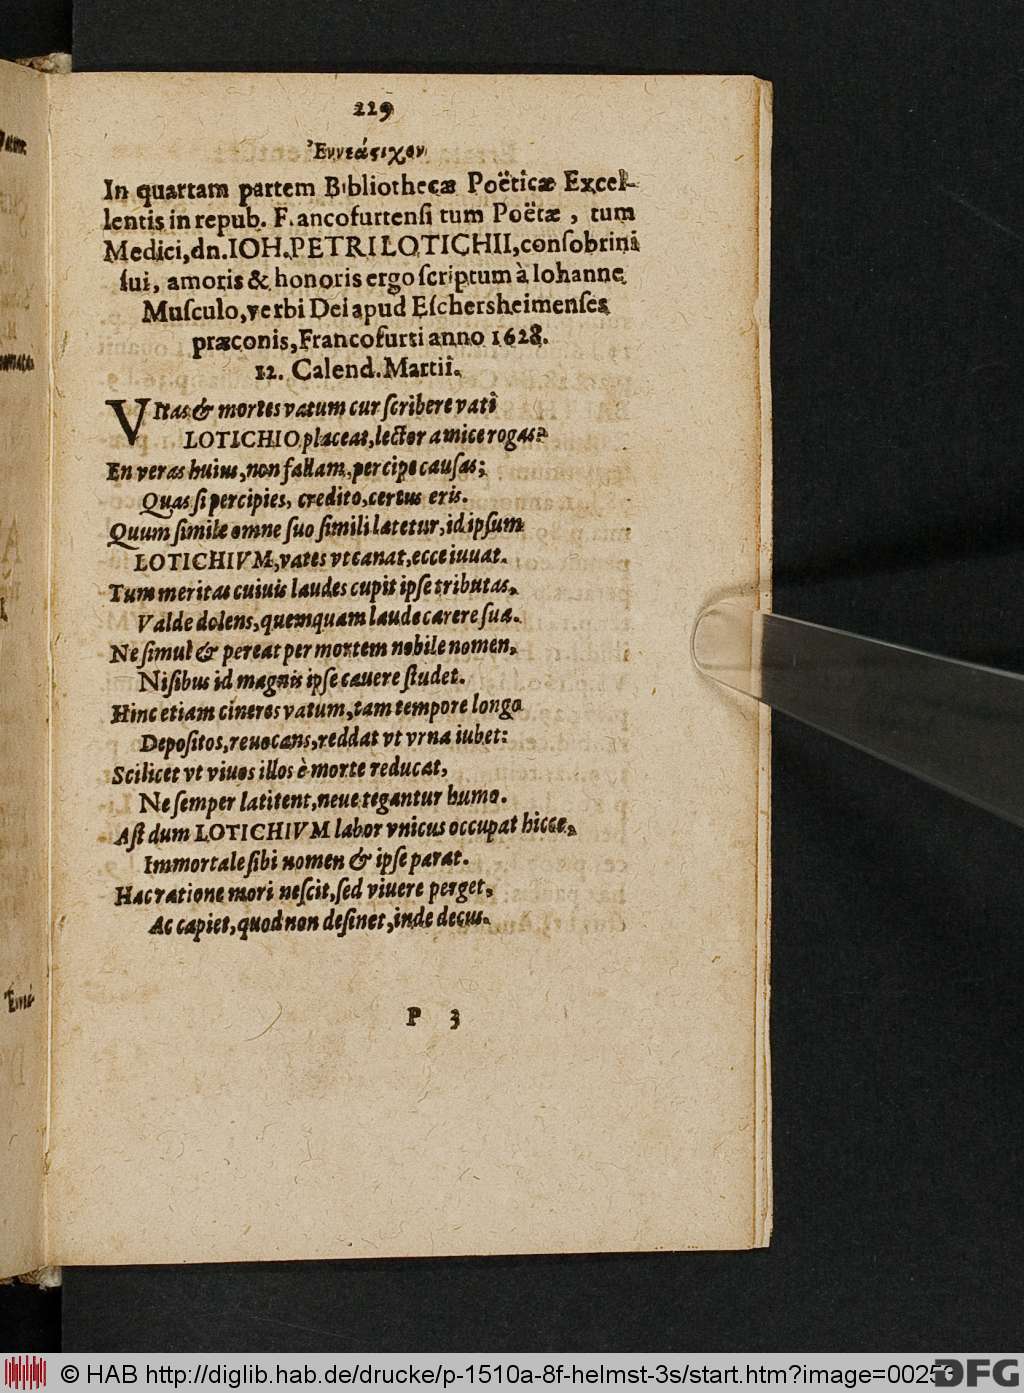 229
Ἐννεάστιχον
In quartam partem Bibliothecæ Poëticæ Excel-
lentis in repub. Francofurtensi tum Poëtæ, tum
Medici, dn. IOH. PETRI LOTICHII, consobrini
sui, amoris & honoris ergo scriptum à Iohanne
Musculo, verbi Dei apud Eschersheimenses
præconis, Francofurti anno 1628.
12. Calend. Martii.
VItas & mortes vatum cur scribere vati
LOTICHIO placeat, lector amice rogas?
En veras huius, non fallam, percipe causas;
Quas si percipies, credito, certus eris.
Quum simile omne suo simili latetur, id ipsum
LOTICHIVM, vates vt canat, ecce iuuat.
Tum meritas cuiuis laudes cupit ipse tributas,
Valde dolens, quemquam laude carere sua.
Ne simul & pereat per mortem nobile nomen,
Nisibus id magnis ipse cauere studet.
Hinc etiam cineres vatum, tam tempore longo
Depositos, reuocans, reddat vt vrna iubet:
Scilicet vt viuos illos è morte reducat,
Ne semper latitent, neue tegantur humo.
Ast dum LOTICHIVM labor vnicus occupat hicce,
Immortale sibi nomen & ipse parat.
Hac ratione mori nescit, sed viuere perget,
Ac capiet, quod non desinet, inde decus.
P 3
© HAB http://diglib.hab.de/drucke/p-1510a-8f-helmst-3s/start.htm?image=00253
DFG